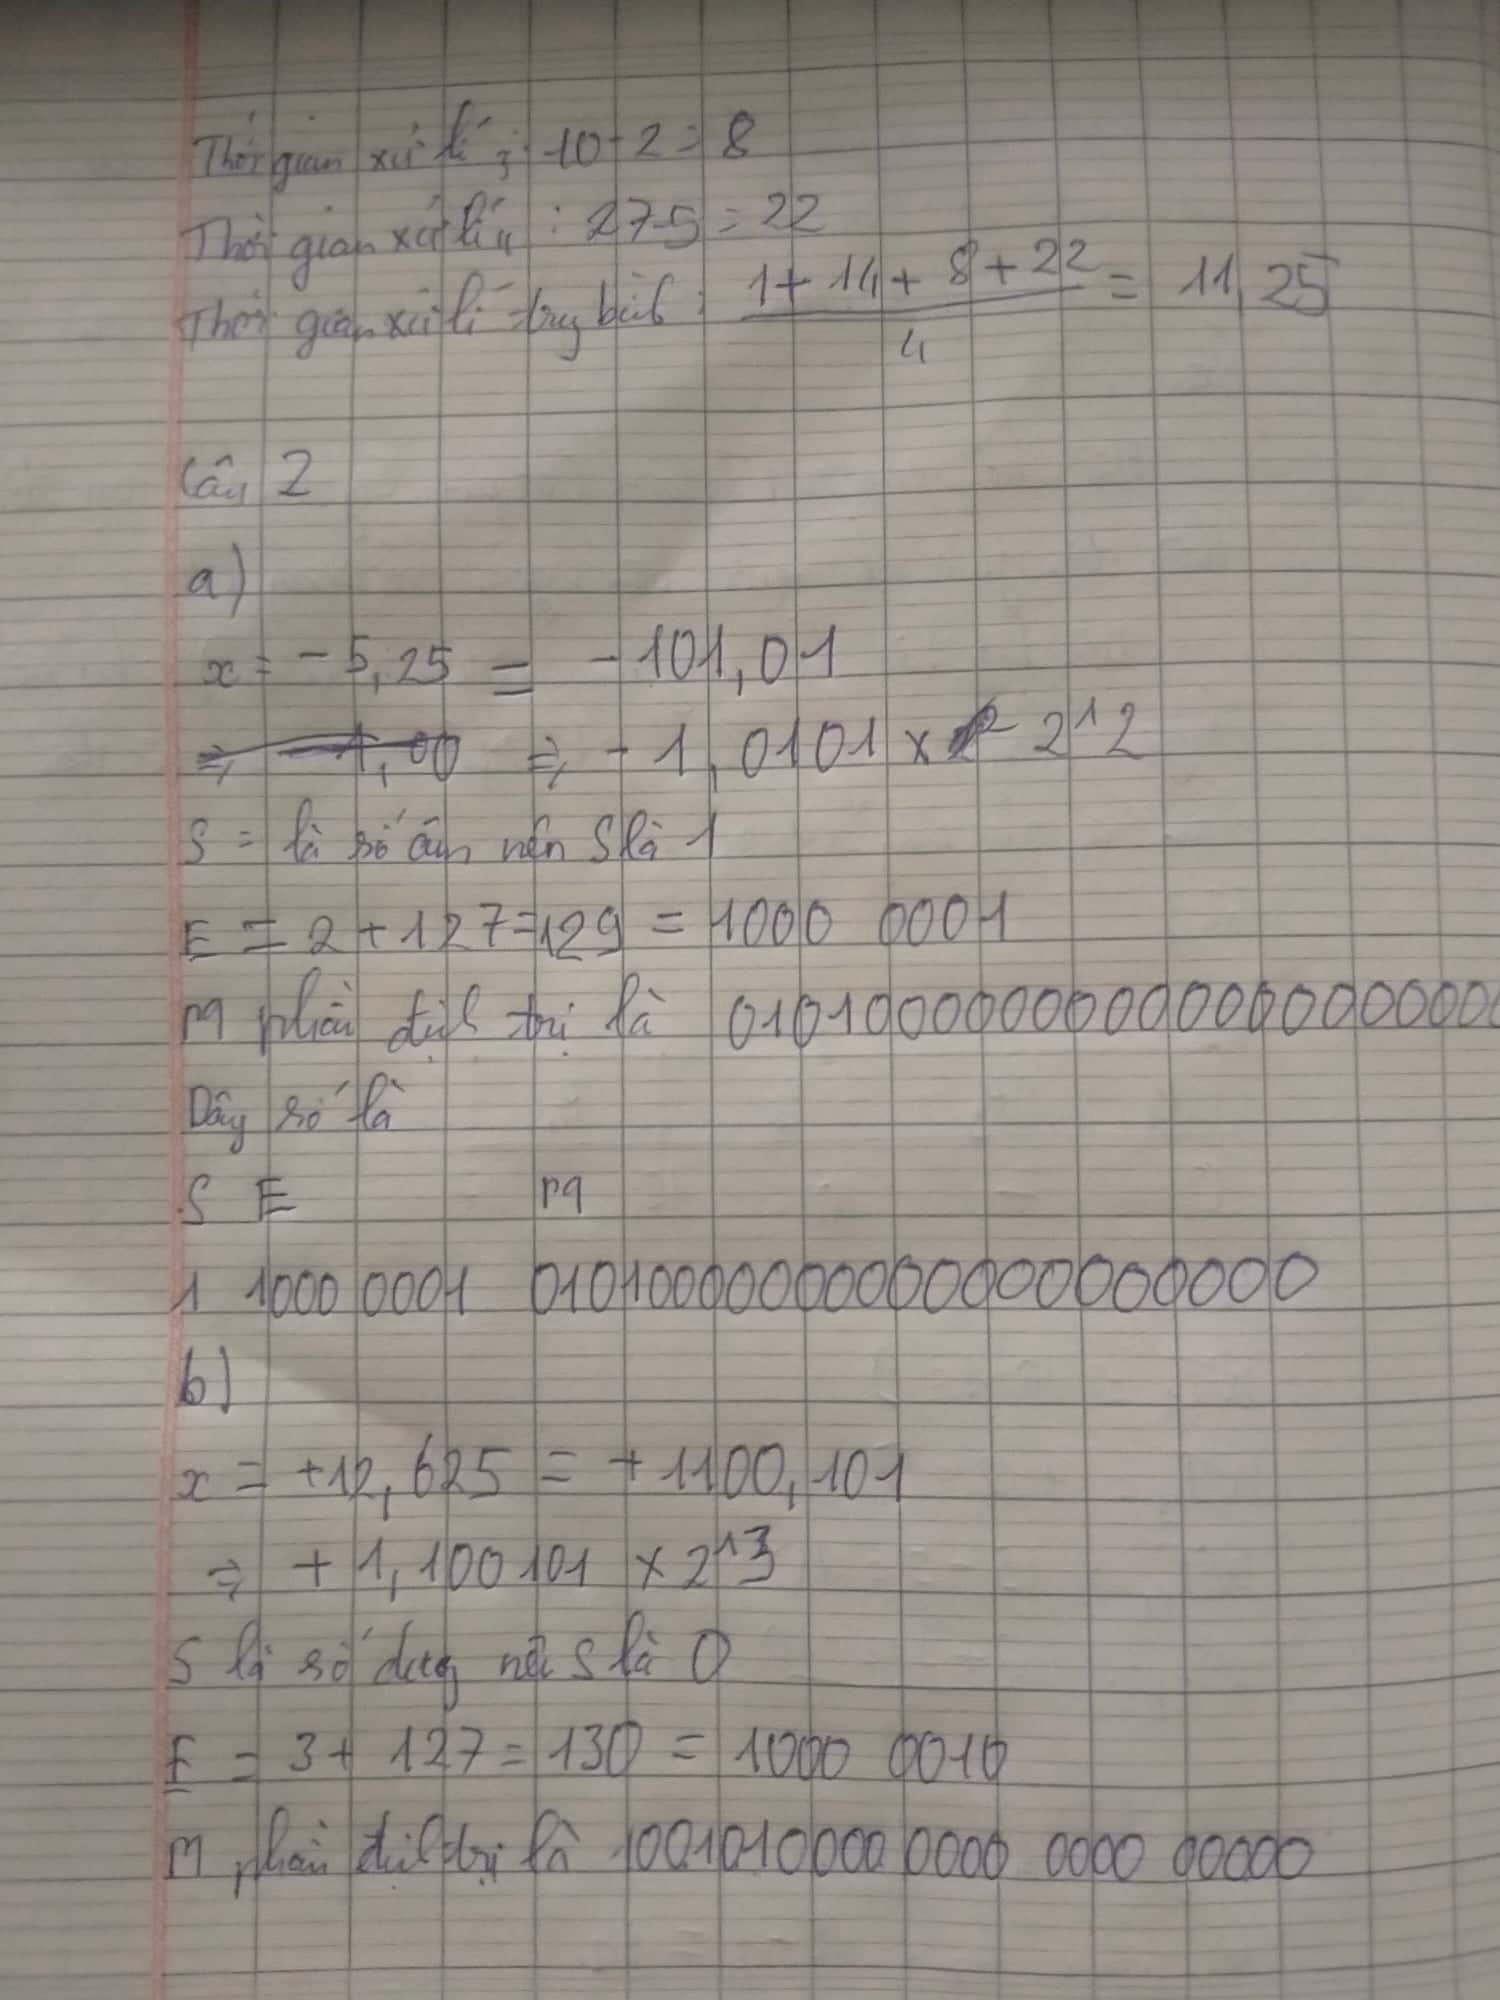 Thời gian xử lí 3: 10-2=8
Thời gian xử lí 4: 27-5=22
Thời gian xử lí trung bình: (1+14+8+22)/4 = 11,25
Câu 2
a)
x = -5,25 = -101,01
⇒ -1,00 ⇒ -1,0101 x 2^2
S = là số âm nên S là 1
E = 2+127=129 = 1000 0001
M phần định trị là 01010000000000000000000
Dãy số là
S E M
1 1000 0001 01010000000000000000000
b)
x = +12,625 = +1100,101
⇒ +1,100101 x 2^3
S là số dương nên S là 0
E = 3+127=130 = 1000 0010
M phần định trị là 1001010000 0000 0000 00000